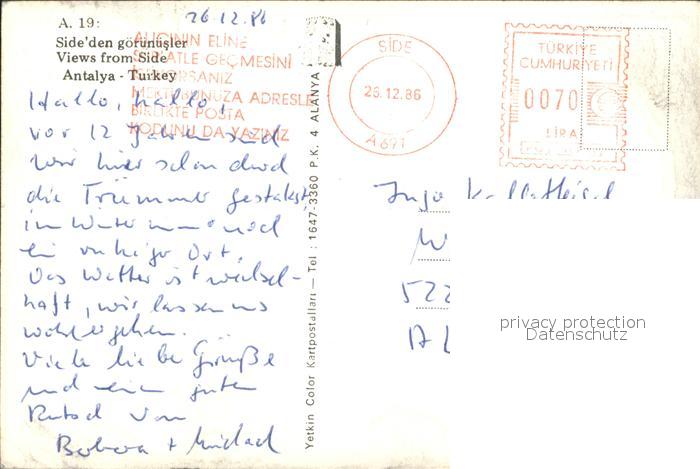 A. 19:
26.12.86
Side'den görünüşler
Views from Side
Antalya - Turkey
ALICININ ELİNE
SÜRATLE GEÇMESİNİ
MEKTUBUNUZA ADRESLE
BİRLİKTE POSTA
KODUNU DA YAZINIZ
Hallo, hallo,
vor 12 Jahren sind
wir hier schon durch
die Trümmer gestakst,
im Winter immer noch
ein ruhiger Ort.
Das Wetter ist wechsel-
haft, wir lassen uns
wohlergehen.
Viele liebe Grüße
und einen guten
Rutsch von
Barbara + Michael
Yetkin Color Kartpostalları — Tel : 1647-3360 P.K. 4 ALANYA
SİDE
26.12.86
A 691
TÜRKİYE
CUMHURİYETİ
0070
LİRA
Inge
W
522
privacy protection
Datenschutz